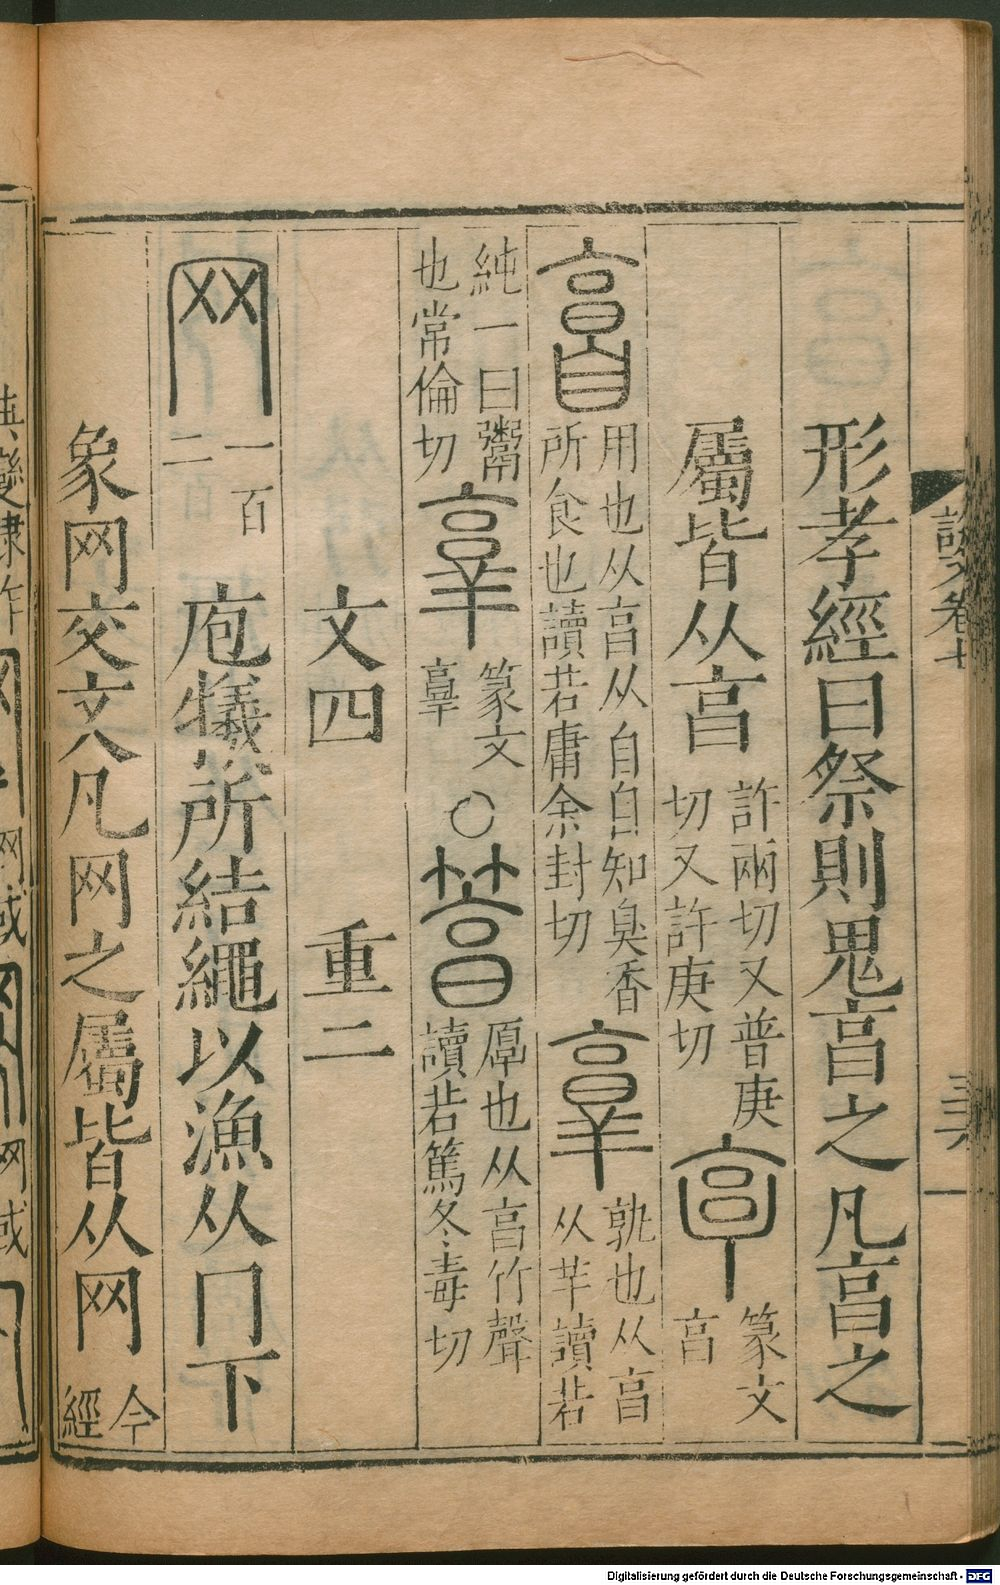 說文卷七
三六
形孝經曰祭則鬼亯之凡亯之
屬皆从亯 許兩切又普庚切又許庚切 篆文亯
用也从亯从自自知臭香所食也讀若庸余封切 孰也从亯从羊讀若
純一曰鬻也常倫切 篆文𦎫 ○ 厚也从亯竹聲讀若篤冬毒切
文四 重二
网 一百二 庖犧所結繩以漁从冂下
象网交文凡网之屬皆从网 今經
典變隸作 网或 网或
Digitalisierung gefördert durch die Deutsche Forschungsgemeinschaft - DFG